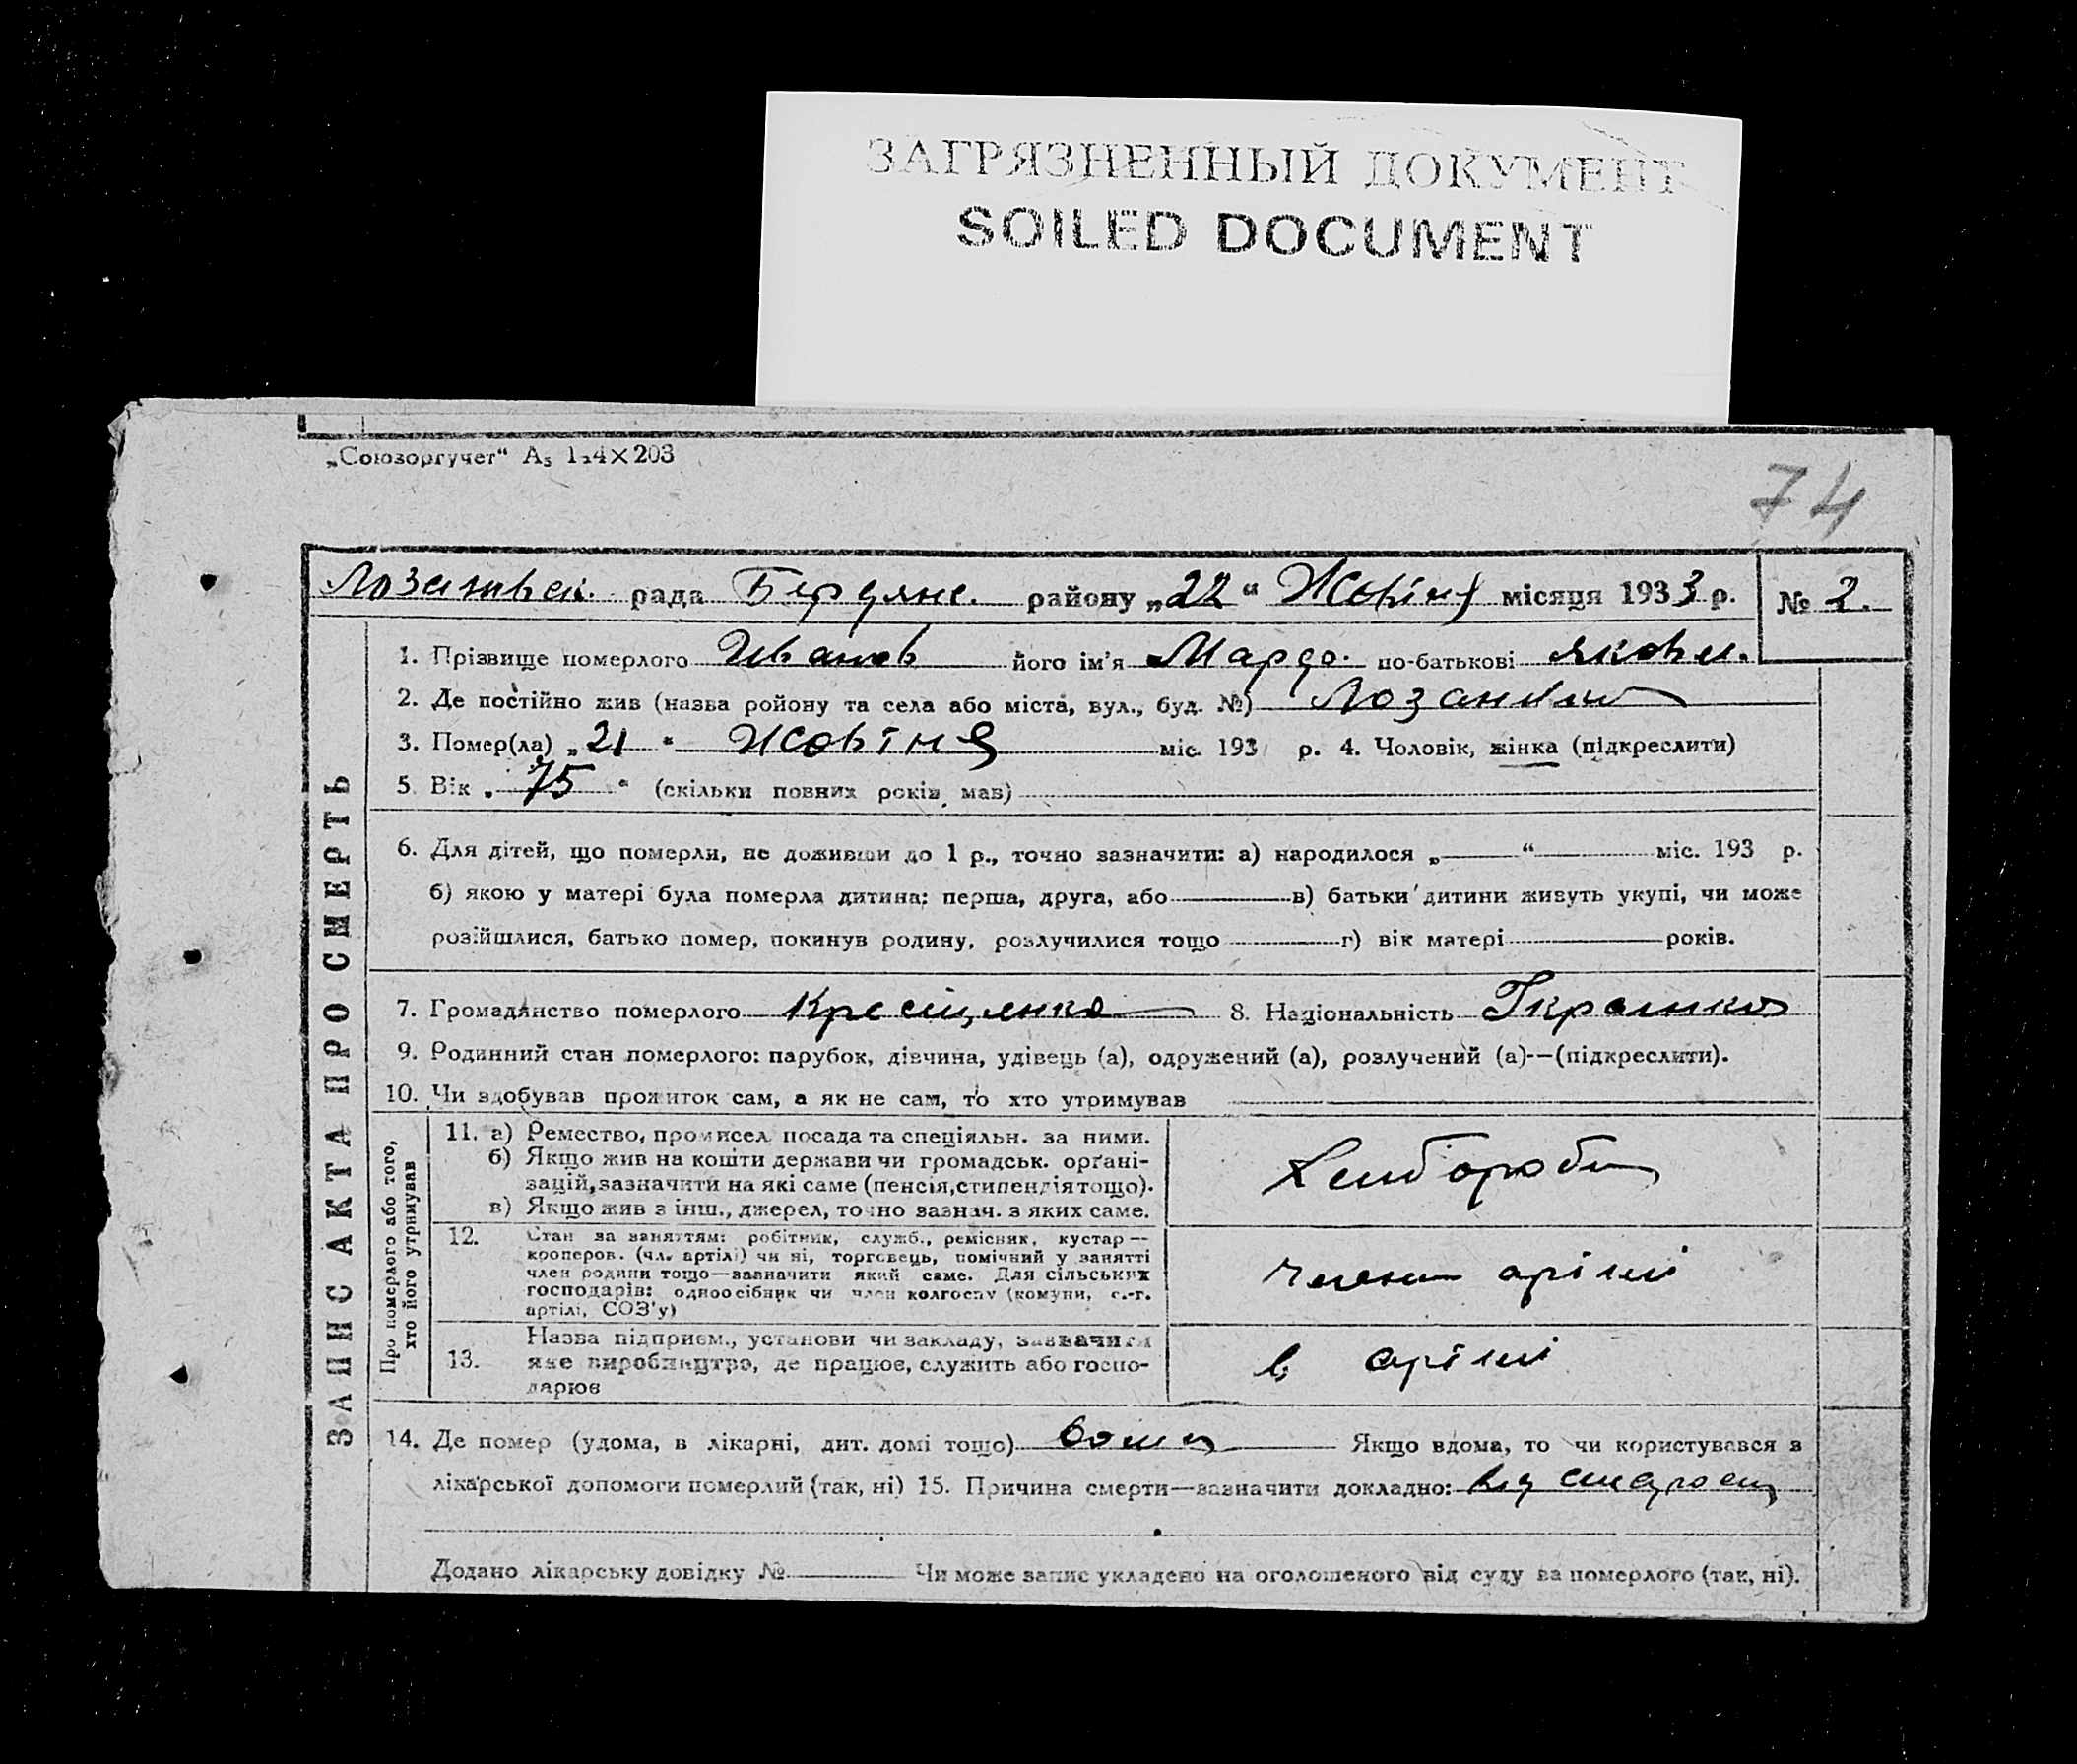 ЗАГРЯЗНЕННЫЙ ДОКУМЕНТ
SOILED DOCUMENT
„Союзоргучет“ А₅ 1 4×203
74
рада Бердянс. району „22“ Жовтня місяця 1933 р. № 2.
ЗАПИС АКТА ПРО СМЕРТЬ
1. Прізвище померлого Иванов його ім'я по-батькові Яковл.
2. Де постійно жив (назва ройону та села або міста, вул., буд. №)
3. Помер(ла) „21“ жовтня міс. 193 р. 4. Чоловік, жінка (підкреслити)
5. Вік „75“ (скільки повних років мав)
6. Для дітей, що померли, не доживши до 1 р., точно зазначити: а) народилося „—“ — міс. 193 р.
б) якою у матері була померла дитина: перша, друга, або — в) батьки дитини живуть укупі, чи може
розійшлися, батько помер, покинув родину, розлучилися тощо — г) вік матері — років.
7. Громадянство померлого 8. Національність
9. Родинний стан померлого: парубок, дівчина, удівець (а), одружений (а), розлучений (а)--(підкреслити).
10. Чи здобував прожиток сам, а як не сам, то хто утримував
Про померлого або того,
хто його утримував
11. а) Ремество, промисел посада та спеціяльн. за ними.
б) Якщо жив на кошти держави чи громадськ. орґані-
зацій, зазначити на які саме (пенсія, стипендія тощо).
в) Якщо жив з інш., джерел, точно зазнач. з яких саме.
Хлібороб
12. Стан за заняттям: робітник, служб., ремісник, кустар —
кооперов. (чл. артілі) чи ні, торговець, помічний у занятті
член родини тощо—зазначити який саме. Для сільських
господарів: одноосібник чи член колгоспу (комуни, с.-г.
артілі, СОЗ'у)
артілі
13. Назва підприєм., установи чи закладу, зазначити
яке виробництво, де працює, служить або госпо-
дарює
в артілі
14. Де помер (удома, в лікарні, дит. домі тощо) дома Якщо вдома, то чи користувався в
лікарської допомоги померлий (так, ні) 15. Причина смерти—зазначити докладно: від старости
Додано лікарську довідку № — Чи може запис укладено на оголошеного від суду за померлого (так, ні).